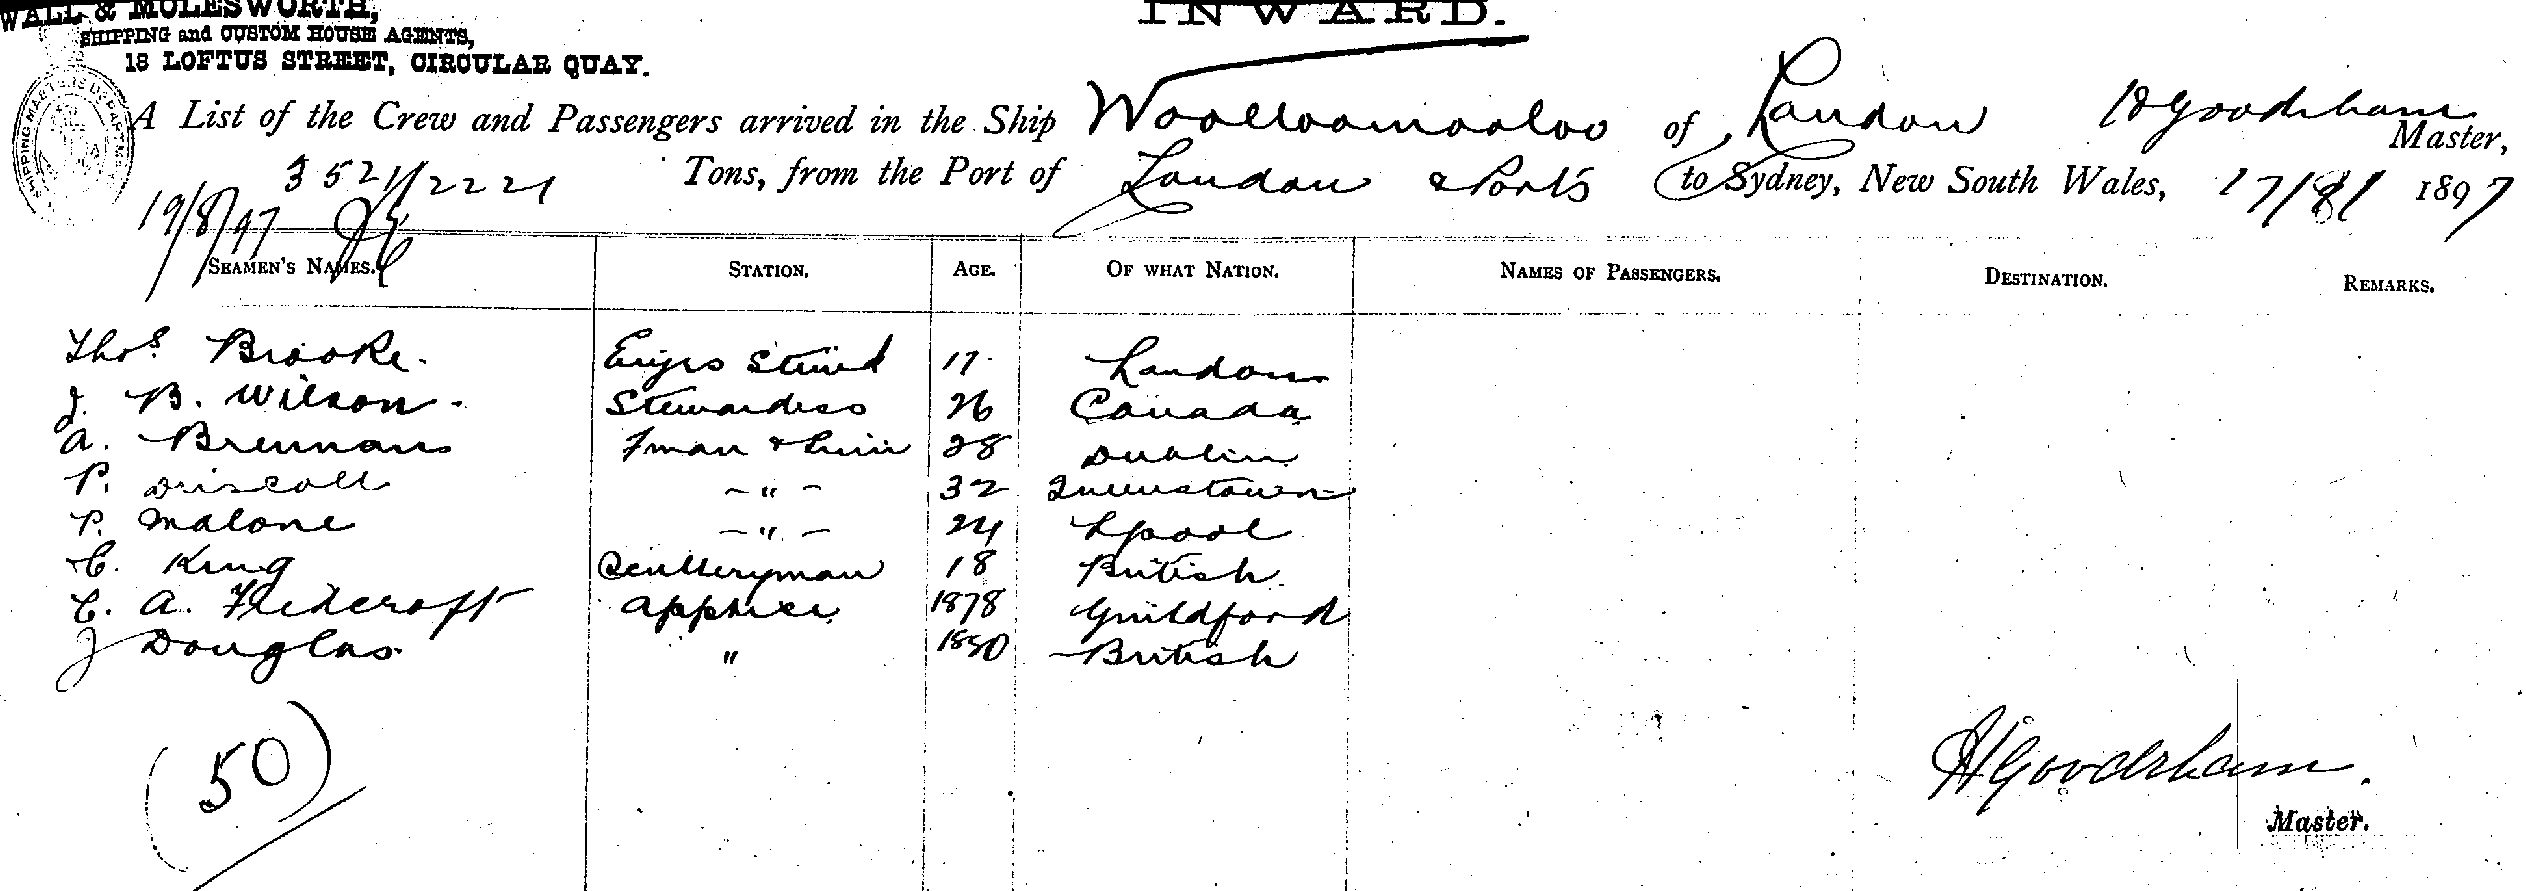 WALL & MOLESWORTH,
SHIPPING and CUSTOM HOUSE AGENTS,
18 LOFTUS STREET, CIRCULAR QUAY.
INWARD.
A List of the Crew and Passengers arrived in the Ship Woolloomooloo of London H Gooderham Master,
3521/2221 Tons, from the Port of London & Ports to Sydney, New South Wales, 17/8/ 1897
19/8/97
SEAMEN'S NAMES. STATION. AGE. OF WHAT NATION. NAMES OF PASSENGERS. DESTINATION. REMARKS.
Thos. Brooke. Engrs Stewd 17 London
J. B. Wilson. Stewardess 26 Canada
A. Brennan Fman & Trimr 28 Dublin
P. Driscoll - " - 32 Queenstown
P. Malone - " - 24 Lpool
C. King Sculleryman 18 British
C. A. Appntice 1878 Guildford
J Douglas " 1880 British
(50)
H Gooderham.
Master.